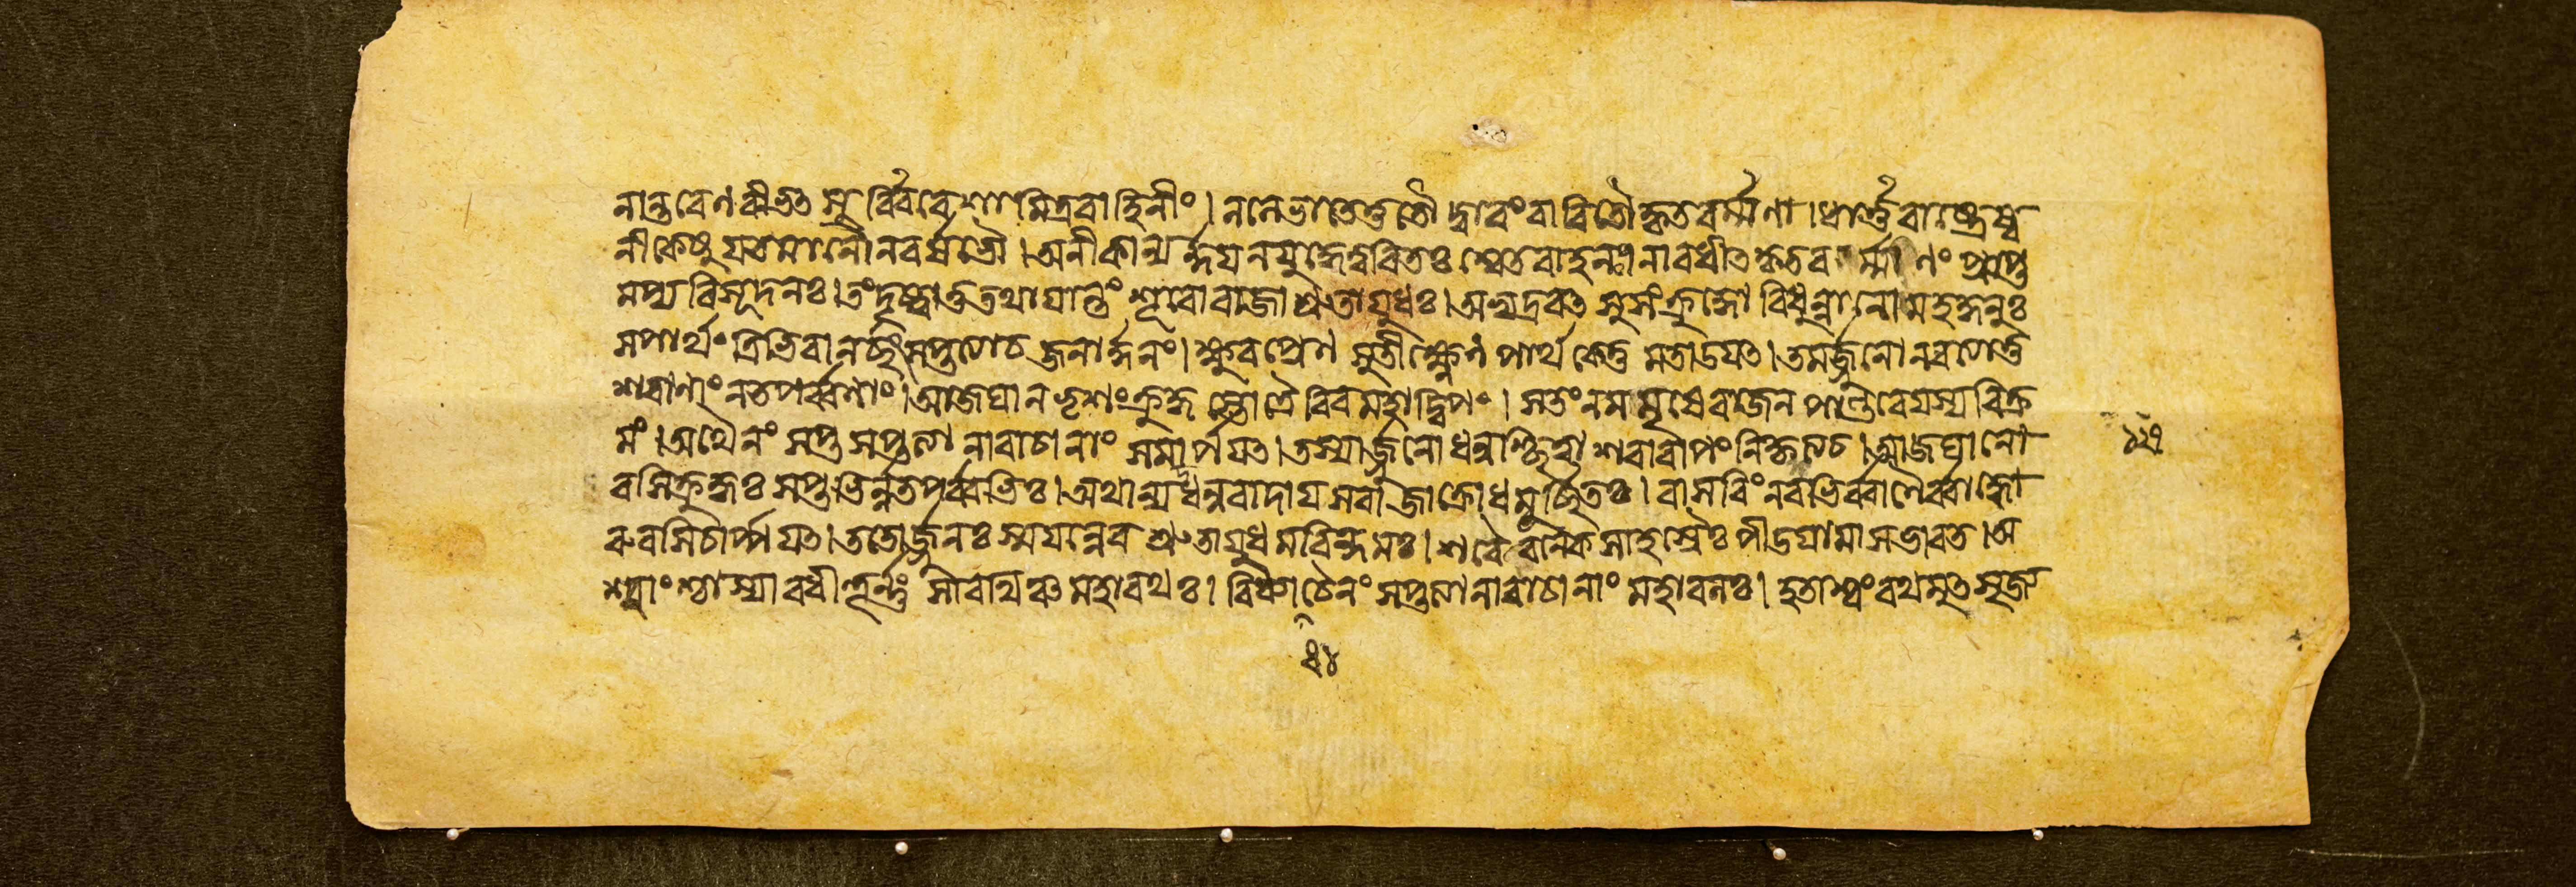 নান্তরেণ বীভৎসুর্বিবেশামিত্রবাহিনীং। নলেভাতেতুতৌ দ্বারংবারিতৌকৃতবর্ম্মণা। ধার্ত্তরাষ্ট্রেষ্ব
নীকেষু যতমানৌনরর্ষভৌ। অনীকান্যর্দ্দয়নযুদ্ধেত্বরিতঃ শ্বেতবাহনঃ। নাবধীত কৃতবর্ম্মাণং প্রাপ্ত
মপ্যরিসূদনঃ। তংদৃষ্ট্বাতুতথায়ান্তং শূরোরাজাশ্রুতায়ুধঃ। অভ্যদ্রবৎ সুসংক্রুদ্ধো বিধুন্বানোমহদ্ধনুঃ
সপার্থং ত্রিভিরানর্চ্ছৎসপ্তত্যাচ জনার্দ্দনং। ক্ষুরপ্রেণ সুতীক্ষ্ণেন পার্থকেতু মতাডয়ৎ। তমর্জ্জুনোনবত্যাতু
শরাণাং নতপর্ব্বণাং। আজঘানভৃশংক্রুদ্ধ স্তোত্রৈরিবমহাদ্বিপং। সতংনমমৃষেরাজেন পাণ্ডবেয়স্যবিক্র
মং। অথৈনং সপ্তসপ্তত্যা নারাচানাং সমার্পয়ৎ। তস্যার্জ্জুনোধনুশ্ছিত্বা শরাবাপং নিকৃত্যচ। আজঘানো
রসিক্রুদ্ধঃ সপ্তভির্ন্নতপর্ব্বভিঃ। অথান্যধনুরাদায় সরাজাক্রোধমূর্চ্ছিতঃ। বাসবিংনবভির্ব্বাণৈর্ব্বাহ্বো
রুরসিচার্প্পয়ৎ। ততোর্জ্জুনঃ স্ময়ন্নেব শ্রুতায়ুধমরিন্দমঃ। শরৈরনেকসাহস্রৈঃ পীডয়ামাসভারত। অ
শ্বাংশ্চাস্যাবধীত্তূর্ন্নং সারথিঞ্চ মহারথঃ। বিব্যাধচৈনং সপ্তত্যানারাচানাং মহাবলঃ। হতাশ্বংরথমুৎসৃজ্য